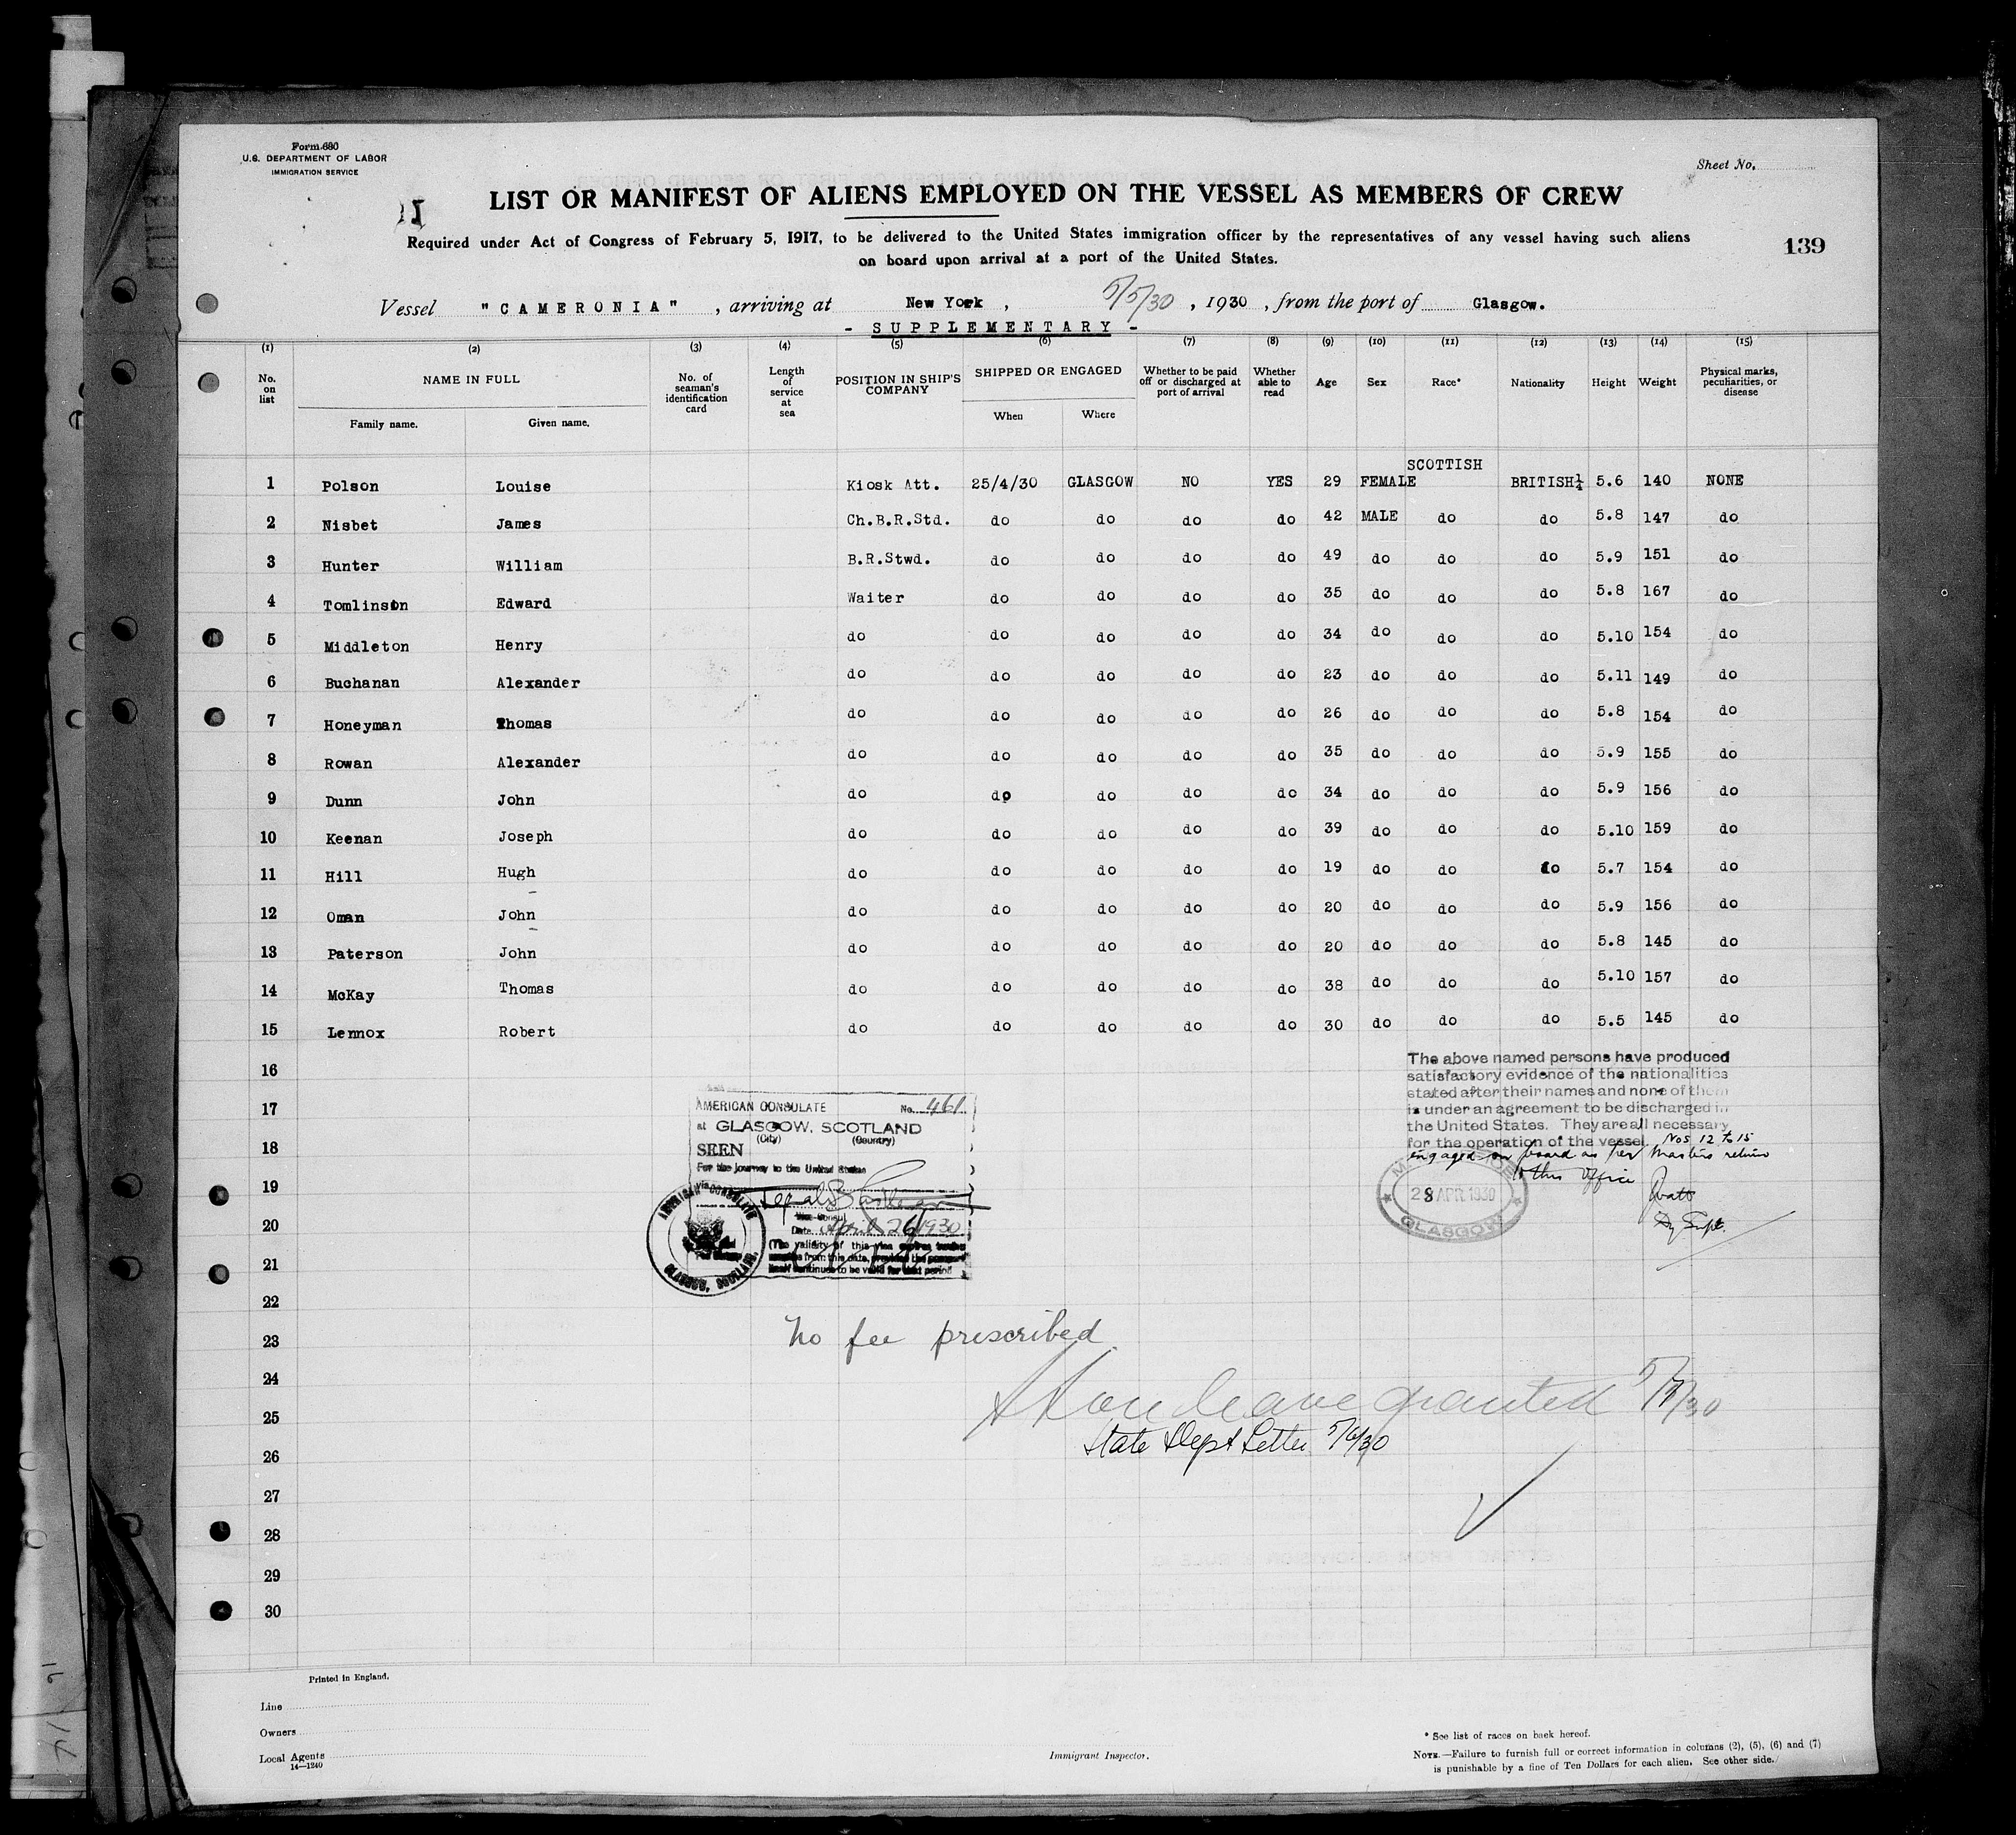 Form 680
U.S. DEPARTMENT OF LABOR
IMMIGRATION SERVICE
Sheet No.
LIST OR MANIFEST OF ALIENS EMPLOYED ON THE VESSEL AS MEMBERS OF CREW
Required under Act of Congress of February 5, 1917, to be delivered to the United States immigration officer by the representatives of any vessel having such aliens
on board upon arrival at a port of the United States.
139
Vessel "CAMERONIA" , arriving at New York , 5/5/30 , 1930 , from the port of Glasgow.
- SUPPLEMENTARY -
(1) (2) (3) (4) (5) (6) (7) (8) (9) (10) (11) (12) (13) (14) (15)
No. on list NAME IN FULL No. of seaman's identification card Length of service at sea POSITION IN SHIP'S COMPANY SHIPPED OR ENGAGED Whether to be paid off or discharged at port of arrival Whether able to read Age Sex Race* Nationality Height Weight Physical marks, peculiarities, or disease
Family name. Given name. When Where
1 Polson Louise Kiosk Att. 25/4/30 GLASGOW NO YES 29 FEMALE SCOTTISH BRITISH 5.6¼ 140 NONE
2 Nisbet James Ch.B.R.Std. do do do do 42 MALE do do 5.8 147 do
3 Hunter William B.R.Stwd. do do do do 49 do do do 5.9 151 do
4 Tomlinson Edward Waiter do do do do 35 do do do 5.8 167 do
5 Middleton Henry do do do do do 34 do do do 5.10 154 do
6 Buchanan Alexander do do do do do 23 do do do 5.11 149 do
7 Honeyman Thomas do do do do do 26 do do do 5.8 154 do
8 Rowan Alexander do do do do do 35 do do do 5.9 155 do
9 Dunn John do do do do do 34 do do do 5.9 156 do
10 Keenan Joseph do do do do do 39 do do do 5.10 159 do
11 Hill Hugh do do do do do 19 do do do 5.7 154 do
12 Oman John do do do do do 20 do do do 5.9 156 do
13 Paterson John do do do do do 20 do do do 5.8 145 do
14 McKay Thomas do do do do do 38 do do do 5.10 157 do
15 Lennox Robert do do do do do 30 do do do 5.5 145 do
16
17
18
19
20
21
22
23
24
25
26
27
28
29
30
The above named persons have produced
satisfactory evidence of the nationalities
stated after their names and none of them
is under an agreement to be discharged in
the United States. They are all necessary
for the operation of the vessel. Nos 12 to 15
engaged on board as per Masters return
to this Office
28 APR 1930
GLASGOW
Watt
Dy Supt.
AMERICAN CONSULATE No. 461
at GLASGOW, SCOTLAND
(City) (Country)
SEEN
For the journey to the United States
via
Vice Consul
Date April 26 1930
(The validity of this visa
from this date, provided the passport
itself continues to be valid for that period
AMERICAN CONSULATE
GLASGOW, SCOTLAND.
No fee prescribed
Shore leave granted 5/7/30
State Dept Letter 5/6/30
Printed in England.
Line
Owners
Local Agents
14—1240
Immigrant Inspector.
* See list of races on back hereof.
NOTE.—Failure to furnish full or correct information in columns (2), (5), (6) and (7)
is punishable by a fine of Ten Dollars for each alien. See other side.